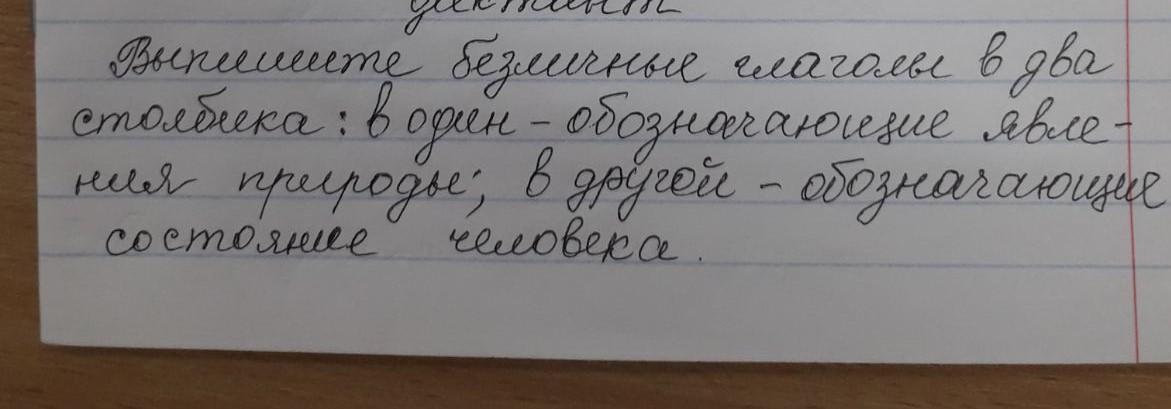 диктант
Выпишите безличные глаголы в два
столбика: в один - обозначающие явле-
ния природы; в другой - обозначающие
состояние человека.